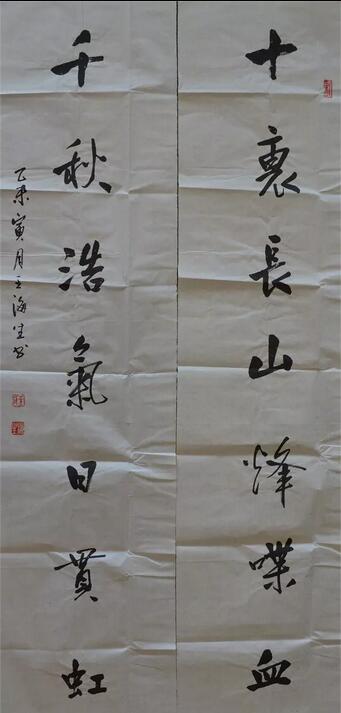 十裏長山烽喋血
千秋浩氣日貫虹
乙未寅月海生书